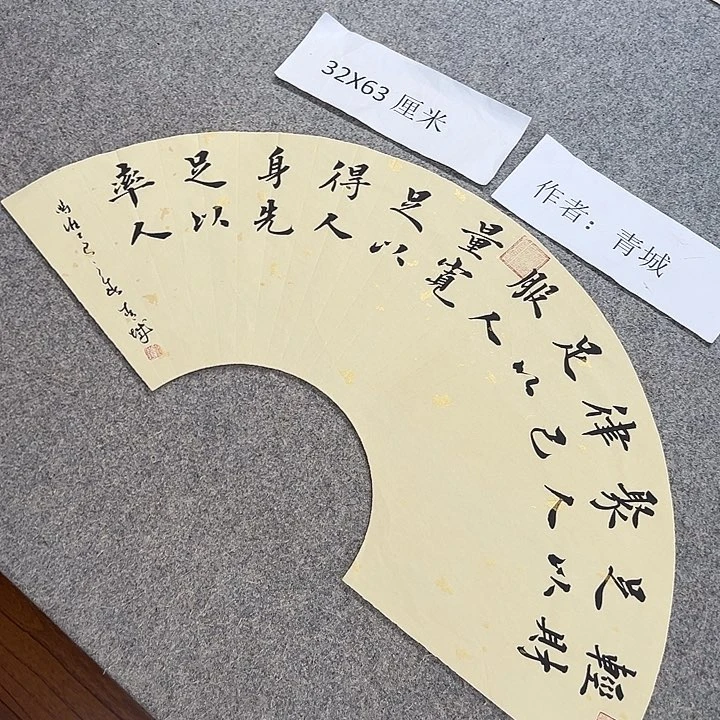 32X63 厘米
作者：青城
輕財
足以
聚人
律己
足以
服人
量寬
足以
得人
身先
足以
率人
乙巳 青城